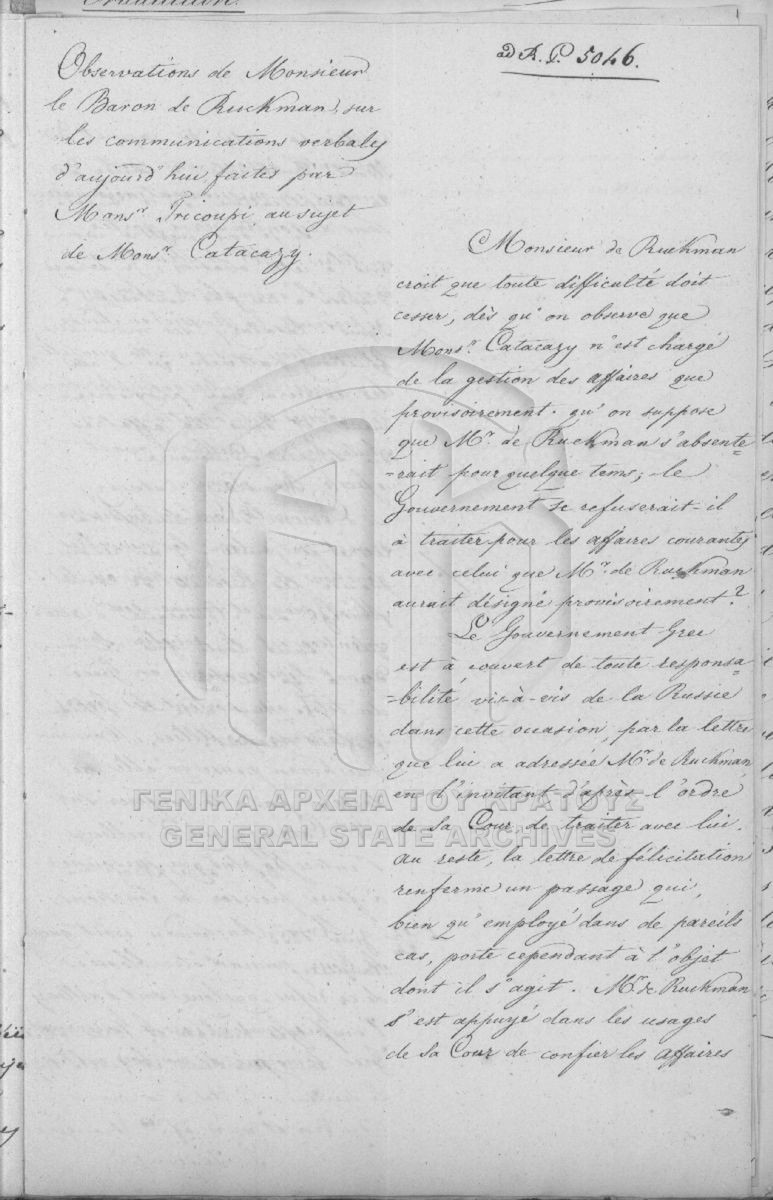 Traduction.
ad A. P. 5046.
Observations de Monsieur
le Baron de Ruckman, sur
les communications verbales
d'aujourd'hui faites par
Monsr. Tricoupi au sujet
de Monsr. Catacazy.
Monsieur de Ruckman
croit que toute difficulté doit
cesser, dès qu'on observe que
Monsr. Catacazy n'est chargé
de la gestion des affaires que
provisoirement. qu'on suppose
que Mr. de Ruckman s'absente=
=rait pour quelque tems; le
Gouvernement se refuserait-il
à traiter pour les affaires courantes
avec celui que Mr. de Ruckman
aurait désigné provisoirement?
Le Gouvernement Grec
est à couvert de toute responsa=
=bilité vis-à-vis de la Russie
dans cette occasion, par la lettre
que lui a adressée Mr. de Ruckman
en l'invitant d'après l'ordre
de sa Cour, de traiter avec lui.
au reste, la lettre de félicitation
renferme un passage qui,
bien qu'employé dans de pareils
cas, porte cependant à l'objet
dont il s'agit. Mr. de Ruckman
s'est appuyé dans les usages
de sa Cour de confier les affaires
ΓΕΝΙΚΑ ΑΡΧΕΙΑ ΤΟΥ ΚΡΑΤΟΥΣ
GENERAL STATE ARCHIVES